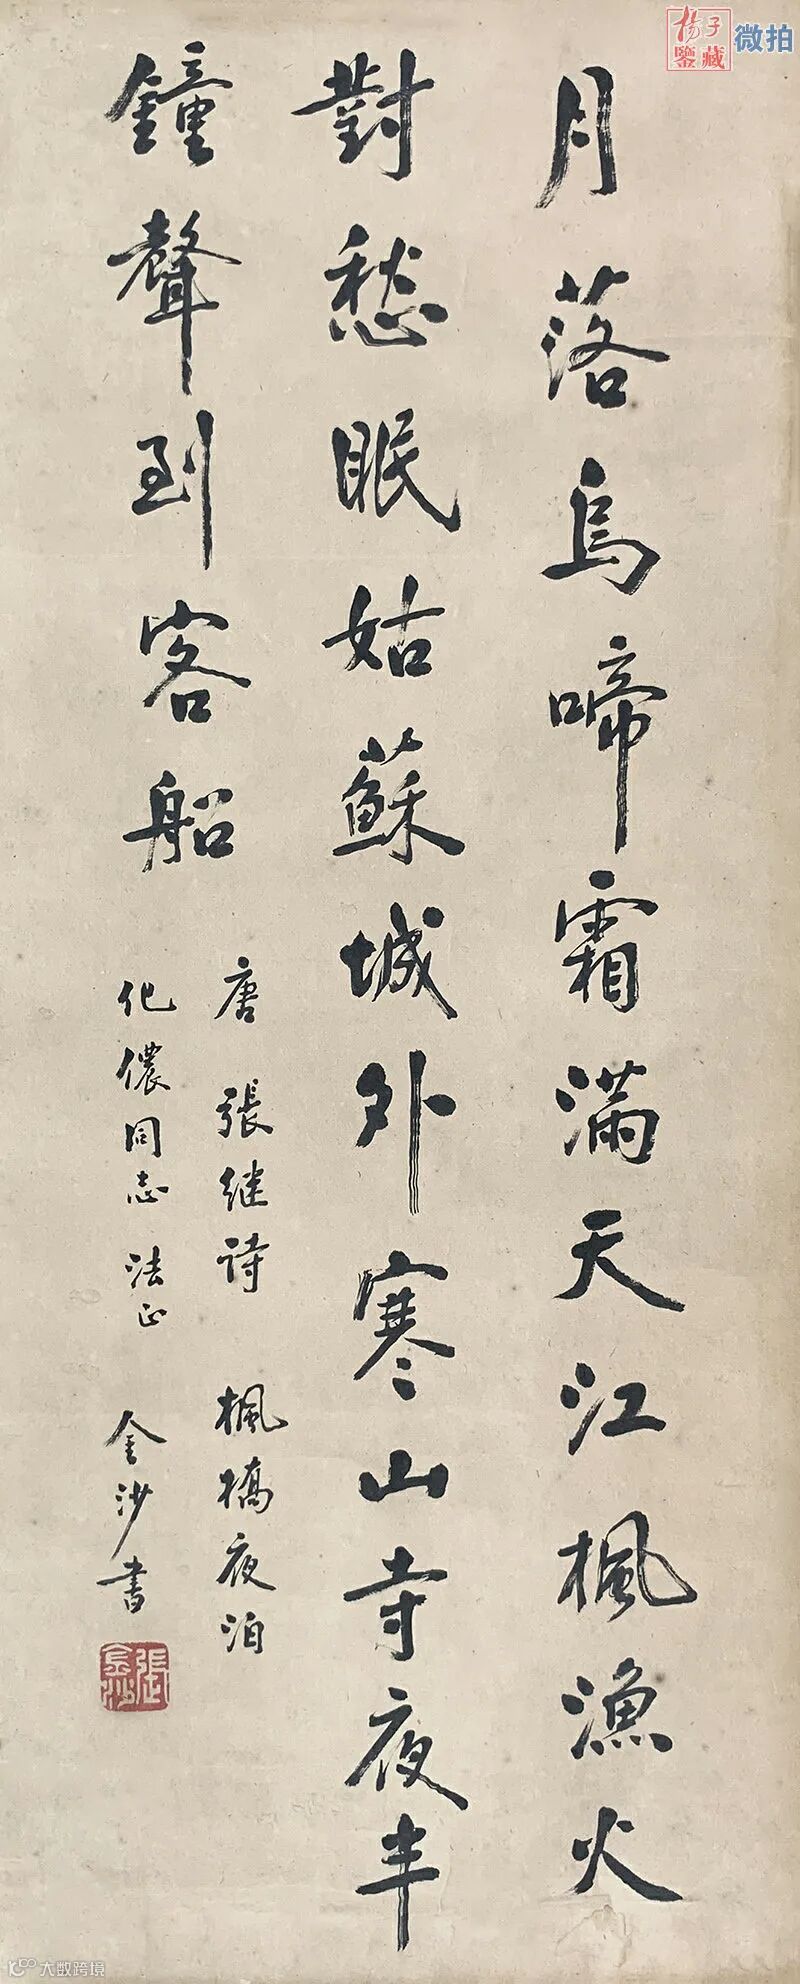 月落烏啼霜滿天江楓漁火
對愁眠姑蘇城外寒山寺夜半
鐘聲到客船
唐張继詩 楓橋夜泊
化儂同志法正 金沙書
張金沙
楊子鑒藏 微拍
大数跨境